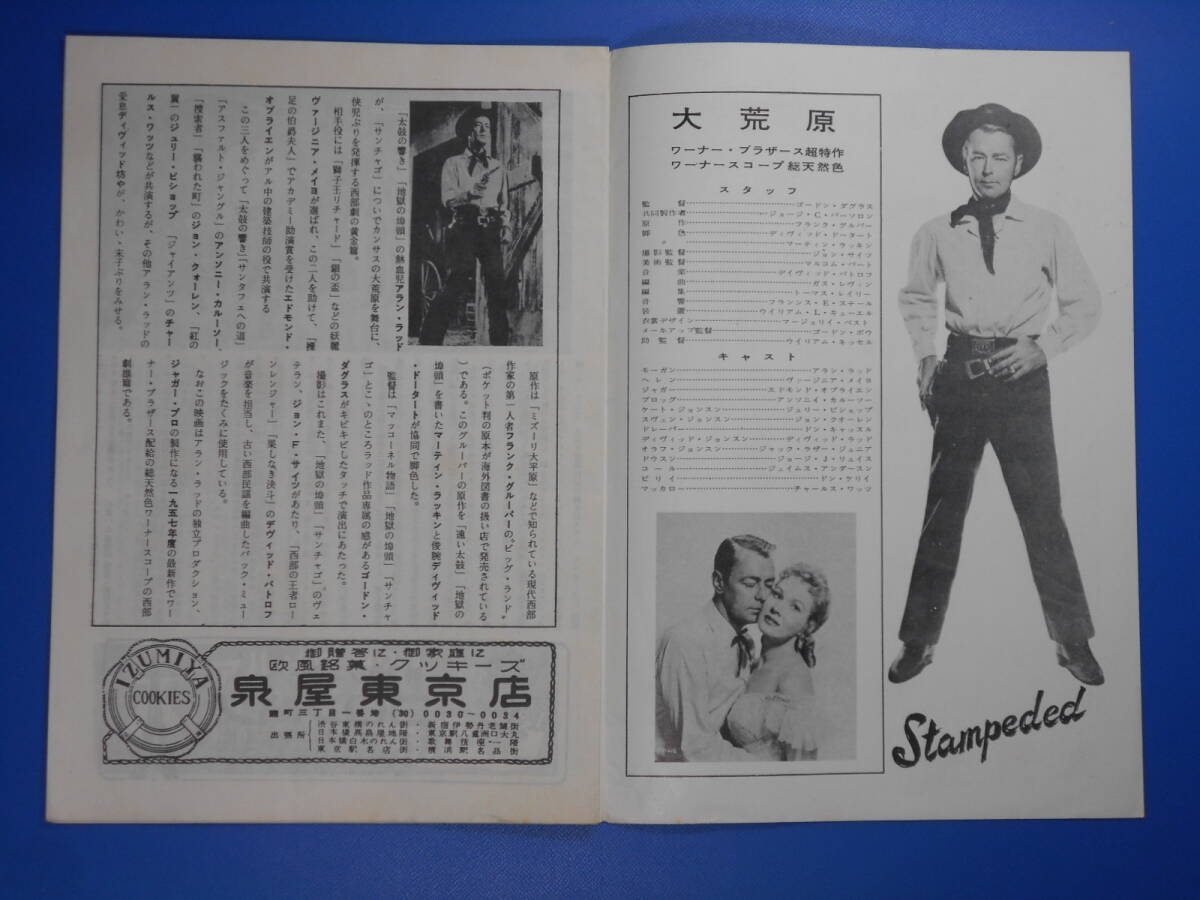 大荒原
ワーナー・ブラザース超特作
ワーナースコープ総天然色
スタッフ
監督 ゴードン・ダグラス
共同製作者 ジョージ・C・バーソロン
原作 フランク・グルバー
脚色 ディヴィッド・ドータート
〃 マーティン・ラッキン
撮影監督 ジョン・サイツ
美術監督 マルコム・バート
音楽 デイヴィッド・バトロフ
編曲 ガス・レヴィン
編集 トーマス・レイリー
音響 フランシス・E・ステール
装置 ウイリアム・L・キューエル
衣裳デザイン マージェリイ・ベスト
メーキアップ監督 ゴードン・ボウ
助監督 ウイリアム・キッセル
キャスト
モーガン アラン・ラッド
ヘレン ヴァージニア・メイヨ
ジャガー エドモンド・オブライエン
ブロッグ アンソニイ・カルーソー
ケート・ジョンスン ジュリー・ビショップ
スヴェン・ジョンスン ジョン・クオーレン
ドレーパー ドン・キャッスル
ディヴィッド・ジョンスン ディヴィッド・ラッド
オラフ・ジョンスン ジャック・ラザー・ジュニア
ドウスン ジョージ・J・リュイス
コール ジェイムス・アンダースン
ビリイ ドン・ケリイ
マッカロー チャールス・ワッツ
Stampeded
「太鼓の響き」「地獄の埠頭」の熱血児アラン・ラッド
が、「サンチャゴ」についでカンサスの大荒原を舞台に、
侠児ぶりを発揮する西部劇の黄金篇。
相手役には「獅子王リチャード」「銀の盃」などの妖麗
ヴァージニア・メイヨが選ばれ、この二人を助けて、「裸
足の伯爵夫人」でアカデミー助演賞を受けたエドモンド・
オブライエンがアル中の建築技師の役で共演する
この三人をめぐって「太鼓の響き」「サンタフェへの道」
「アスファルト・ジャングル」のアンソニー・カルーソー、
「捜索者」「襲われた町」のジョン・クォーレン、「紅の
翼」のジュリー・ビショップ 「ジャイアンツ」のチャー
ルス・ワッツなどが共演するが、その他アラン・ラッドの
愛息ディヴィッド坊やが、かわいゝ末子ぶりをみせる。
原作は「ミズーリ大平原」などで知られている現代西部
作家の第一人者フランク・グルーバーの〝ビッグ・ランド〟
(ポケット判の原本が海外図書の扱い店で発売されている
)である。このグルーバーの原作を「遠い太鼓」「地獄の
埠頭」を書いたマーティン・ラッキンと俊腕ディヴィッド
・ドータートが協同で脚色した。
監督は「マッコーネル物語」「地獄の埠頭」「サンチャ
ゴ」とこゝのところラッド作品専属の感があるゴードン・
ダグラスがキビキビしたタッチで演出にあたった。
撮影はこれまた、「地獄の埠頭」「サンチャゴ」のヴェ
テラン、ジョン・F・サイツがあたり、「西部の王者ロー
ンレンジャー」「果しなき決斗」のデヴィッド・バトロフ
が音楽を担当し、古い西部民謡を編曲したバック・ミュー
ジックをたくみに使用している。
なおこの映画はアラン・ラッドの独立プロダクション、
ジャガー・プロの製作になる一九五七年度の最新作でワー
ナー・ブラザース配給の総天然色ワーナースコープの西部
劇雄篇である。
IZUMIYA
COOKIES
御贈答に・御家庭に
欧風銘菓・クッキーズ
泉屋東京店
麹町三丁目一番地 (30) 0030〜0034
出張所
渋谷東横のれん街・新宿伊勢丹老舗街
日本橋高島屋地階・東京駅八重洲口大丸
日本橋白木のれん街・歌舞伎座一階
東京駅名店街・横浜駅名品街